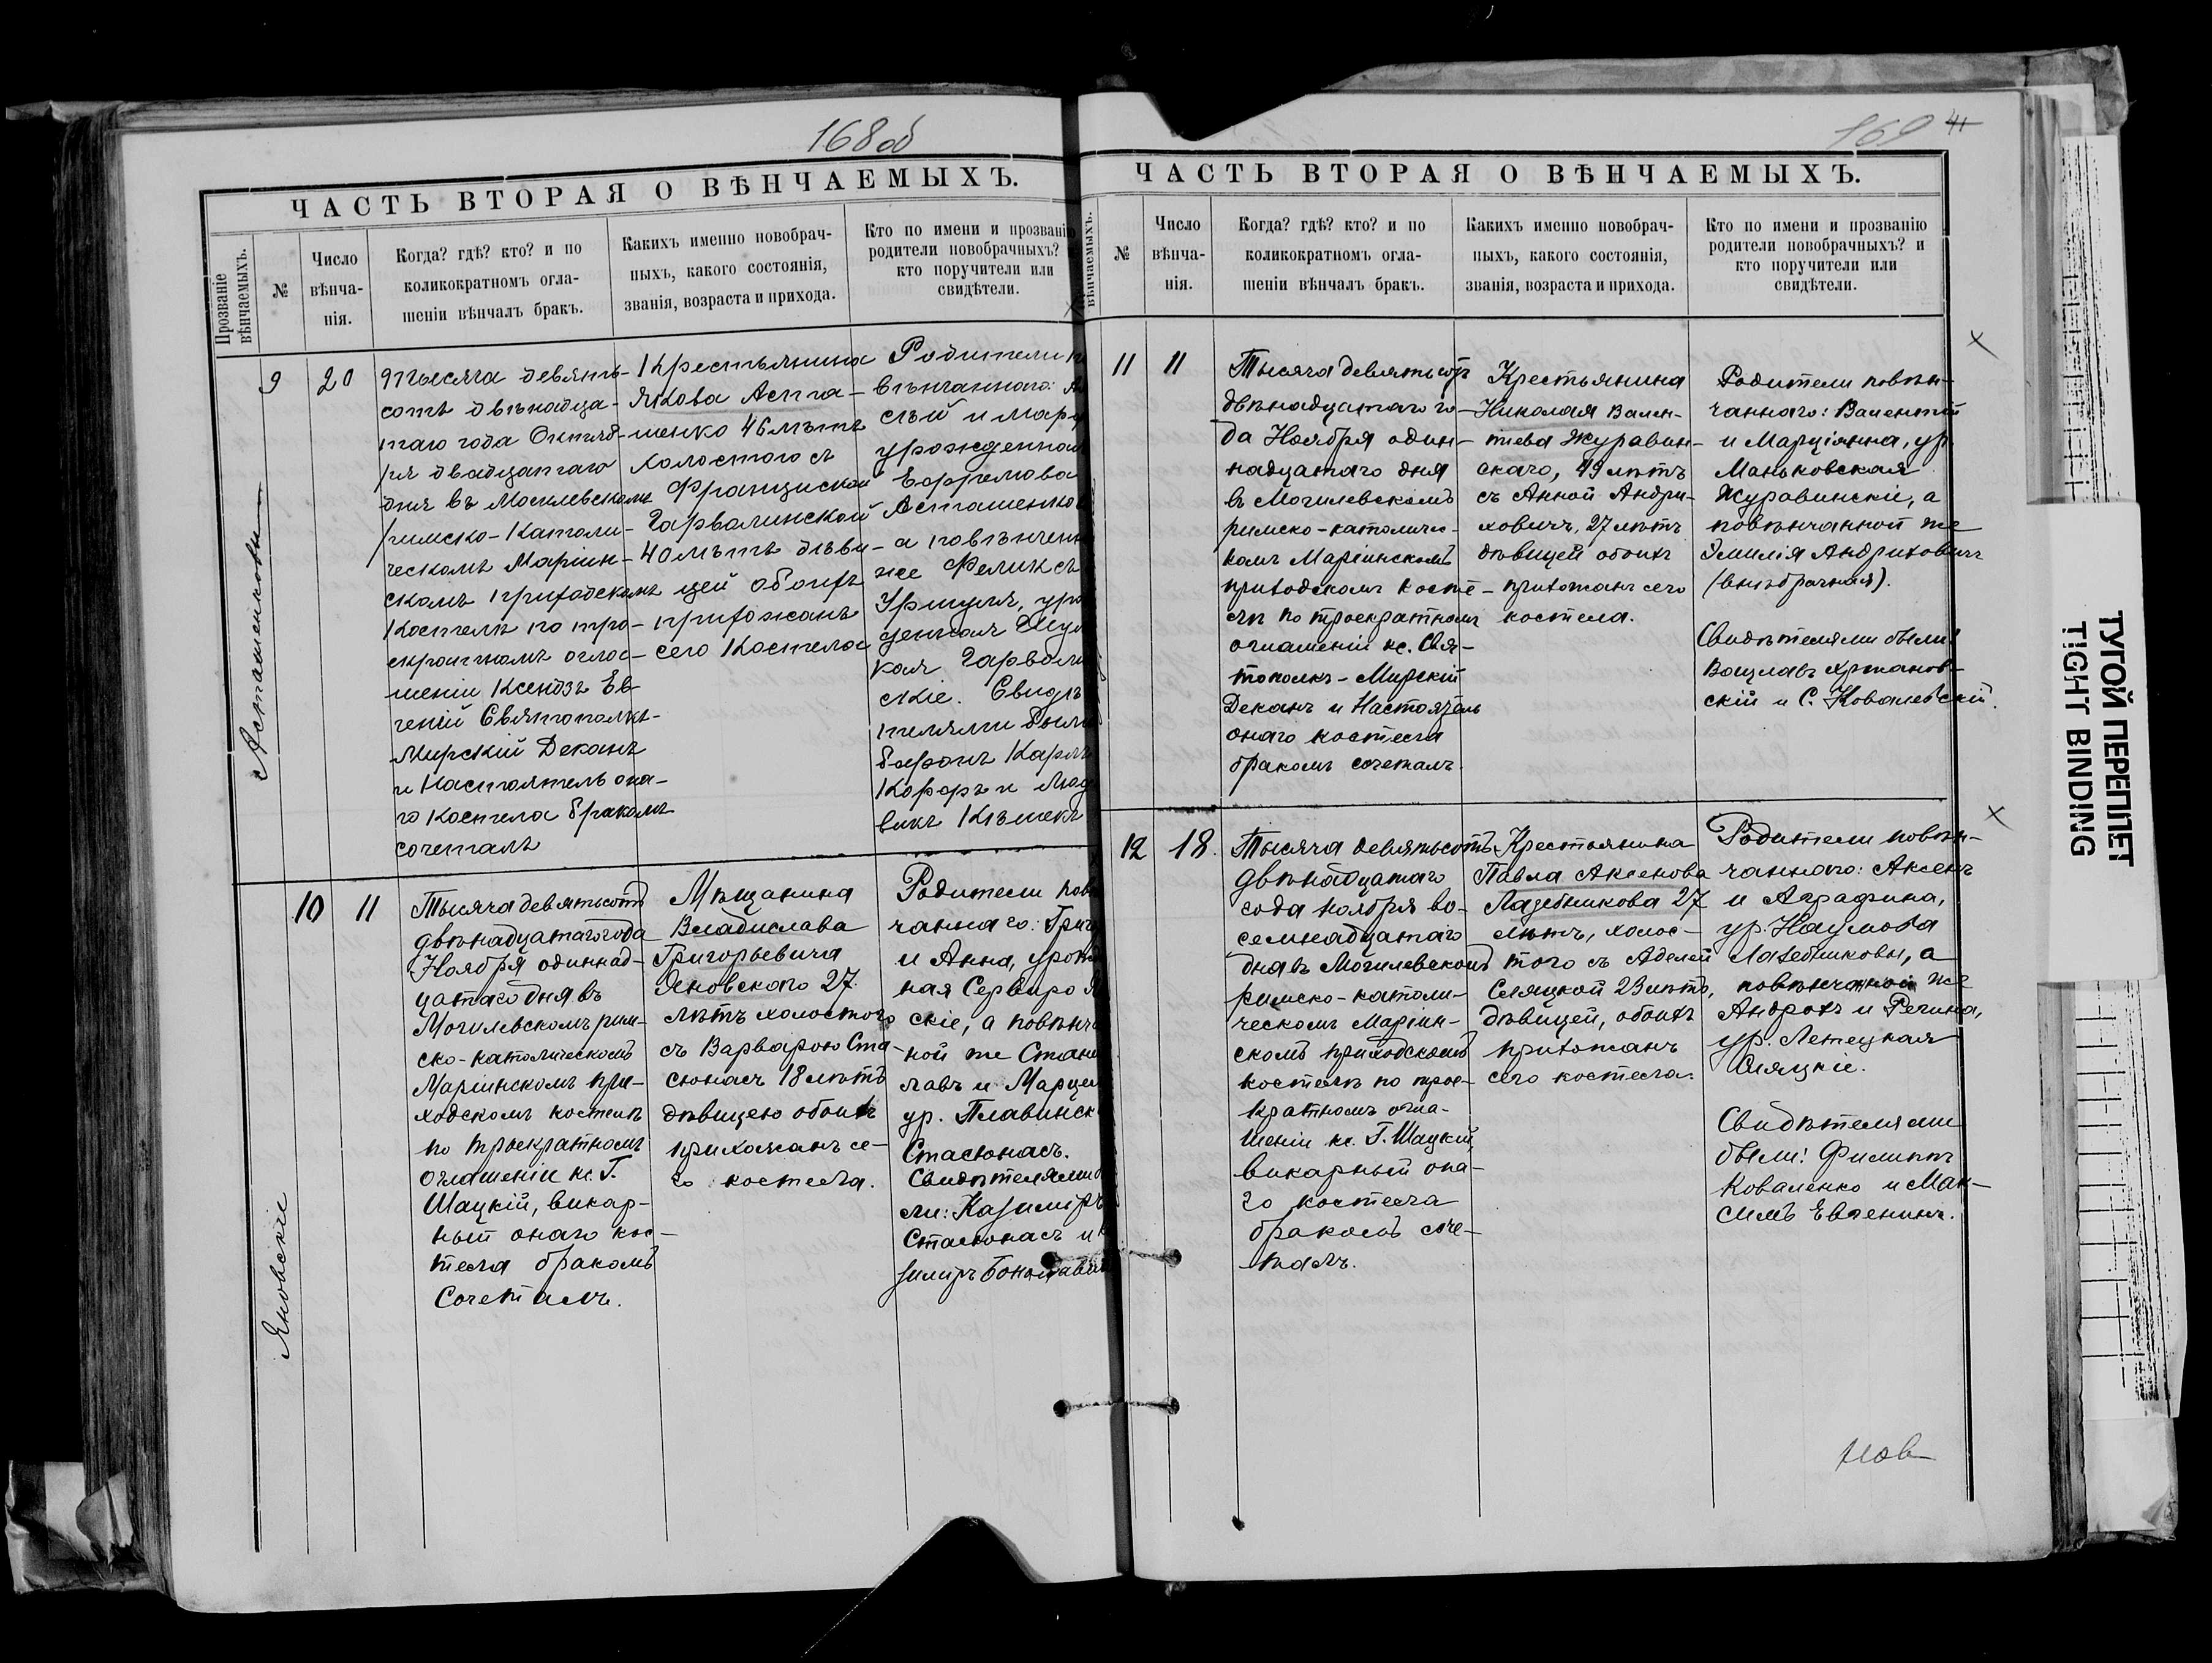 168об
ЧАСТЬ ВТОРАЯ О ВѢНЧАЕМЫХЪ.
Прозваніе вѣнчаемыхъ.
№
Число вѣнча-нія.
Когда? гдѣ? кто? и по
коликократномъ огла-
шеніи вѣнчалъ бракъ.
Какихъ именно новобрач-
ныхъ, какого состоянія,
званія, возраста и прихода.
Кто по имени и прозванію
родители новобрачныхъ?
кто поручители или
свидѣтели.
Асташенковы
9
20
Тысяча девять-
сотъ двѣнадца-
таго года Октяб-
ря двадцатаго
дня въ Могилевскомъ
римско-Католи-
ческомъ Маріин-
скомъ приходскомъ
Костелѣ по тро-
екратномъ огла-
шеніи Ксендзъ Ев-
геній Святополкъ-
Мирскій Деканъ
и Настоятель она-
го Костела бракомъ
сочеталъ
Крестьянина
Якова Аста-
шенко 46 лѣтъ
холостого съ
Франциской
Гарвалинской
40 лѣтъ дѣви-
цей обоихъ
прихожанъ
сего Костела
Родители
вѣнчаннаго:
сѣй и Мар
урожденная
Ефремова
Асташенко
а повѣнчен
же Феликсъ
Уршуля, уро
денная Шу
кая Гарвали
скіе. Свидѣ
телями были
баронъ Карлъ
Корфъ и Люд
викъ Кѣшекъ
Яновскіе
10
11
Тысяча девятьсотъ
двѣнадцатаго года
Ноября одиннад-
цатаго дня въ
Могилевскомъ рим-
ско-католическомъ
Маріинскомъ при-
ходскомъ костелѣ
по троекратномъ
оглашеніи кс. Г.
Шацкій, викар-
ный онаго кос-
тела бракомъ
Сочеталъ.
Мѣщанина
Владислава
Григорьевича
Яновскаго 27
лѣтъ холостого
съ Варварою Ста-
сюнасъ 18 лѣтъ
дѣвицею обоихъ
прихожанъ се-
го костела.
Родители пов
чаннаго: Григ
и Анна, урож
ная Сервиро Я
скіе, а повѣнч
ной же Стани
лавъ и Марцел
ур. Плавинск
Стасюнасъ.
Свидѣтелями б
ли: Казиміръ
Стасюнасъ и К
зиміръ
169
41
ЧАСТЬ ВТОРАЯ О ВѢНЧАЕМЫХЪ.
вѣнчаемыхъ.
№
Число вѣнча-нія.
Когда? гдѣ? кто? и по
коликократномъ огла-
шеніи вѣнчалъ бракъ.
Какихъ именно новобрач-
ныхъ, какого состоянія,
званія, возраста и прихода.
Кто по имени и прозванію
родители новобрачныхъ? и
кто поручители или
свидѣтели.
11
11
Тысяча девятьсотъ
двѣнадцатаго го-
да Ноября один-
надцатаго дня
въ Могилевскомъ
римско-католичес-
комъ Маріинскомъ
приходскомъ косте-
лѣ по троекратномъ
оглашеніи кс. Свя-
тополкъ-Мирскій
Деканъ и Настоятель
онаго костела
бракомъ сочеталъ.
Крестьянина
Николая Вален-
тіева Журавин-
скаго, 49 лѣтъ
съ Анной Андри-
ховичъ, 27 лѣтъ
дѣвицей обоихъ
прихожанъ сего
костела.
Родители повѣн-
чаннаго: Валентій
и Марціянна, ур.
Маньковская
Журавинскіе, а
повѣнчанной же
Эмилія Андриховичъ
(внѣбрачная).
Свидѣтелями были:
Вацлавъ Хржанов-
скій и С. Ковалевскій.
12
18.
Тысяча девятьсотъ
двѣнадцатаго
года ноября во-
семнадцатаго
дня въ Могилевскомъ
римско-католи-
ческомъ Маріин-
скомъ приходскомъ
костелѣ по трое-
кратномъ огла-
шеніи кс. Г. Шацкій,
викарный она-
го костела
бракомъ соче-
талъ.
Крестьянина
Павла Аксенова
Лазебникова 27
лѣтъ, холос-
того съ Аделей
Селяцкой 23 лѣтъ,
дѣвицей, обоихъ
прихожанъ
сего костела.
Родители повѣн-
чаннаго: Аксенъ
и Аграфина,
ур. Наумова
Лазебниковы, а
повѣнчанной же
Андрохъ и Регина,
ур. Летецкая
Селяцкіе.
Свидѣтелями
были: Филиппъ
Коваленко и Мак-
симъ Евженинъ.
ТУГОЙ ПЕРЕПЛЕТ
TIGHT BINDING